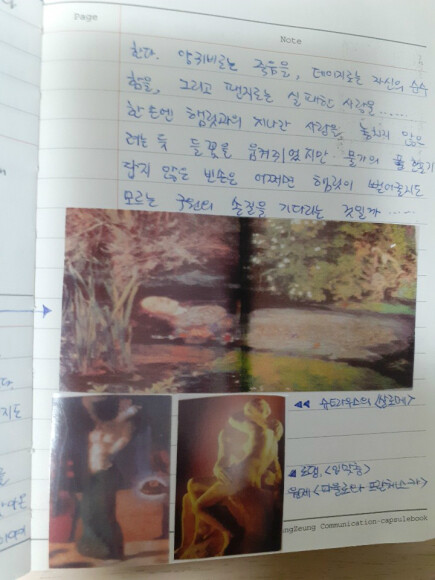 Page
Note
한다. 양귀비로는 죽음을, 데이지로는 자신의 순수
함을, 그리고 팬지로는 실패한 사랑을......
한 손엔 햄릿과의 지나간 사랑을 놓치지 않으
려는 듯 들꽃을 움켜쥐었지만 물가의 풀 한줄기
잡지 않은 빈손은 어쩌면 햄릿이 뻗어올지도
모르는 구원의 손길을 기다리는 것일까......
◀◀ 슈트라우스의 <살로메>
◀ 로댕, <입맞춤>
원제 <파올로와 프란체스카>
Communication-capsulebook